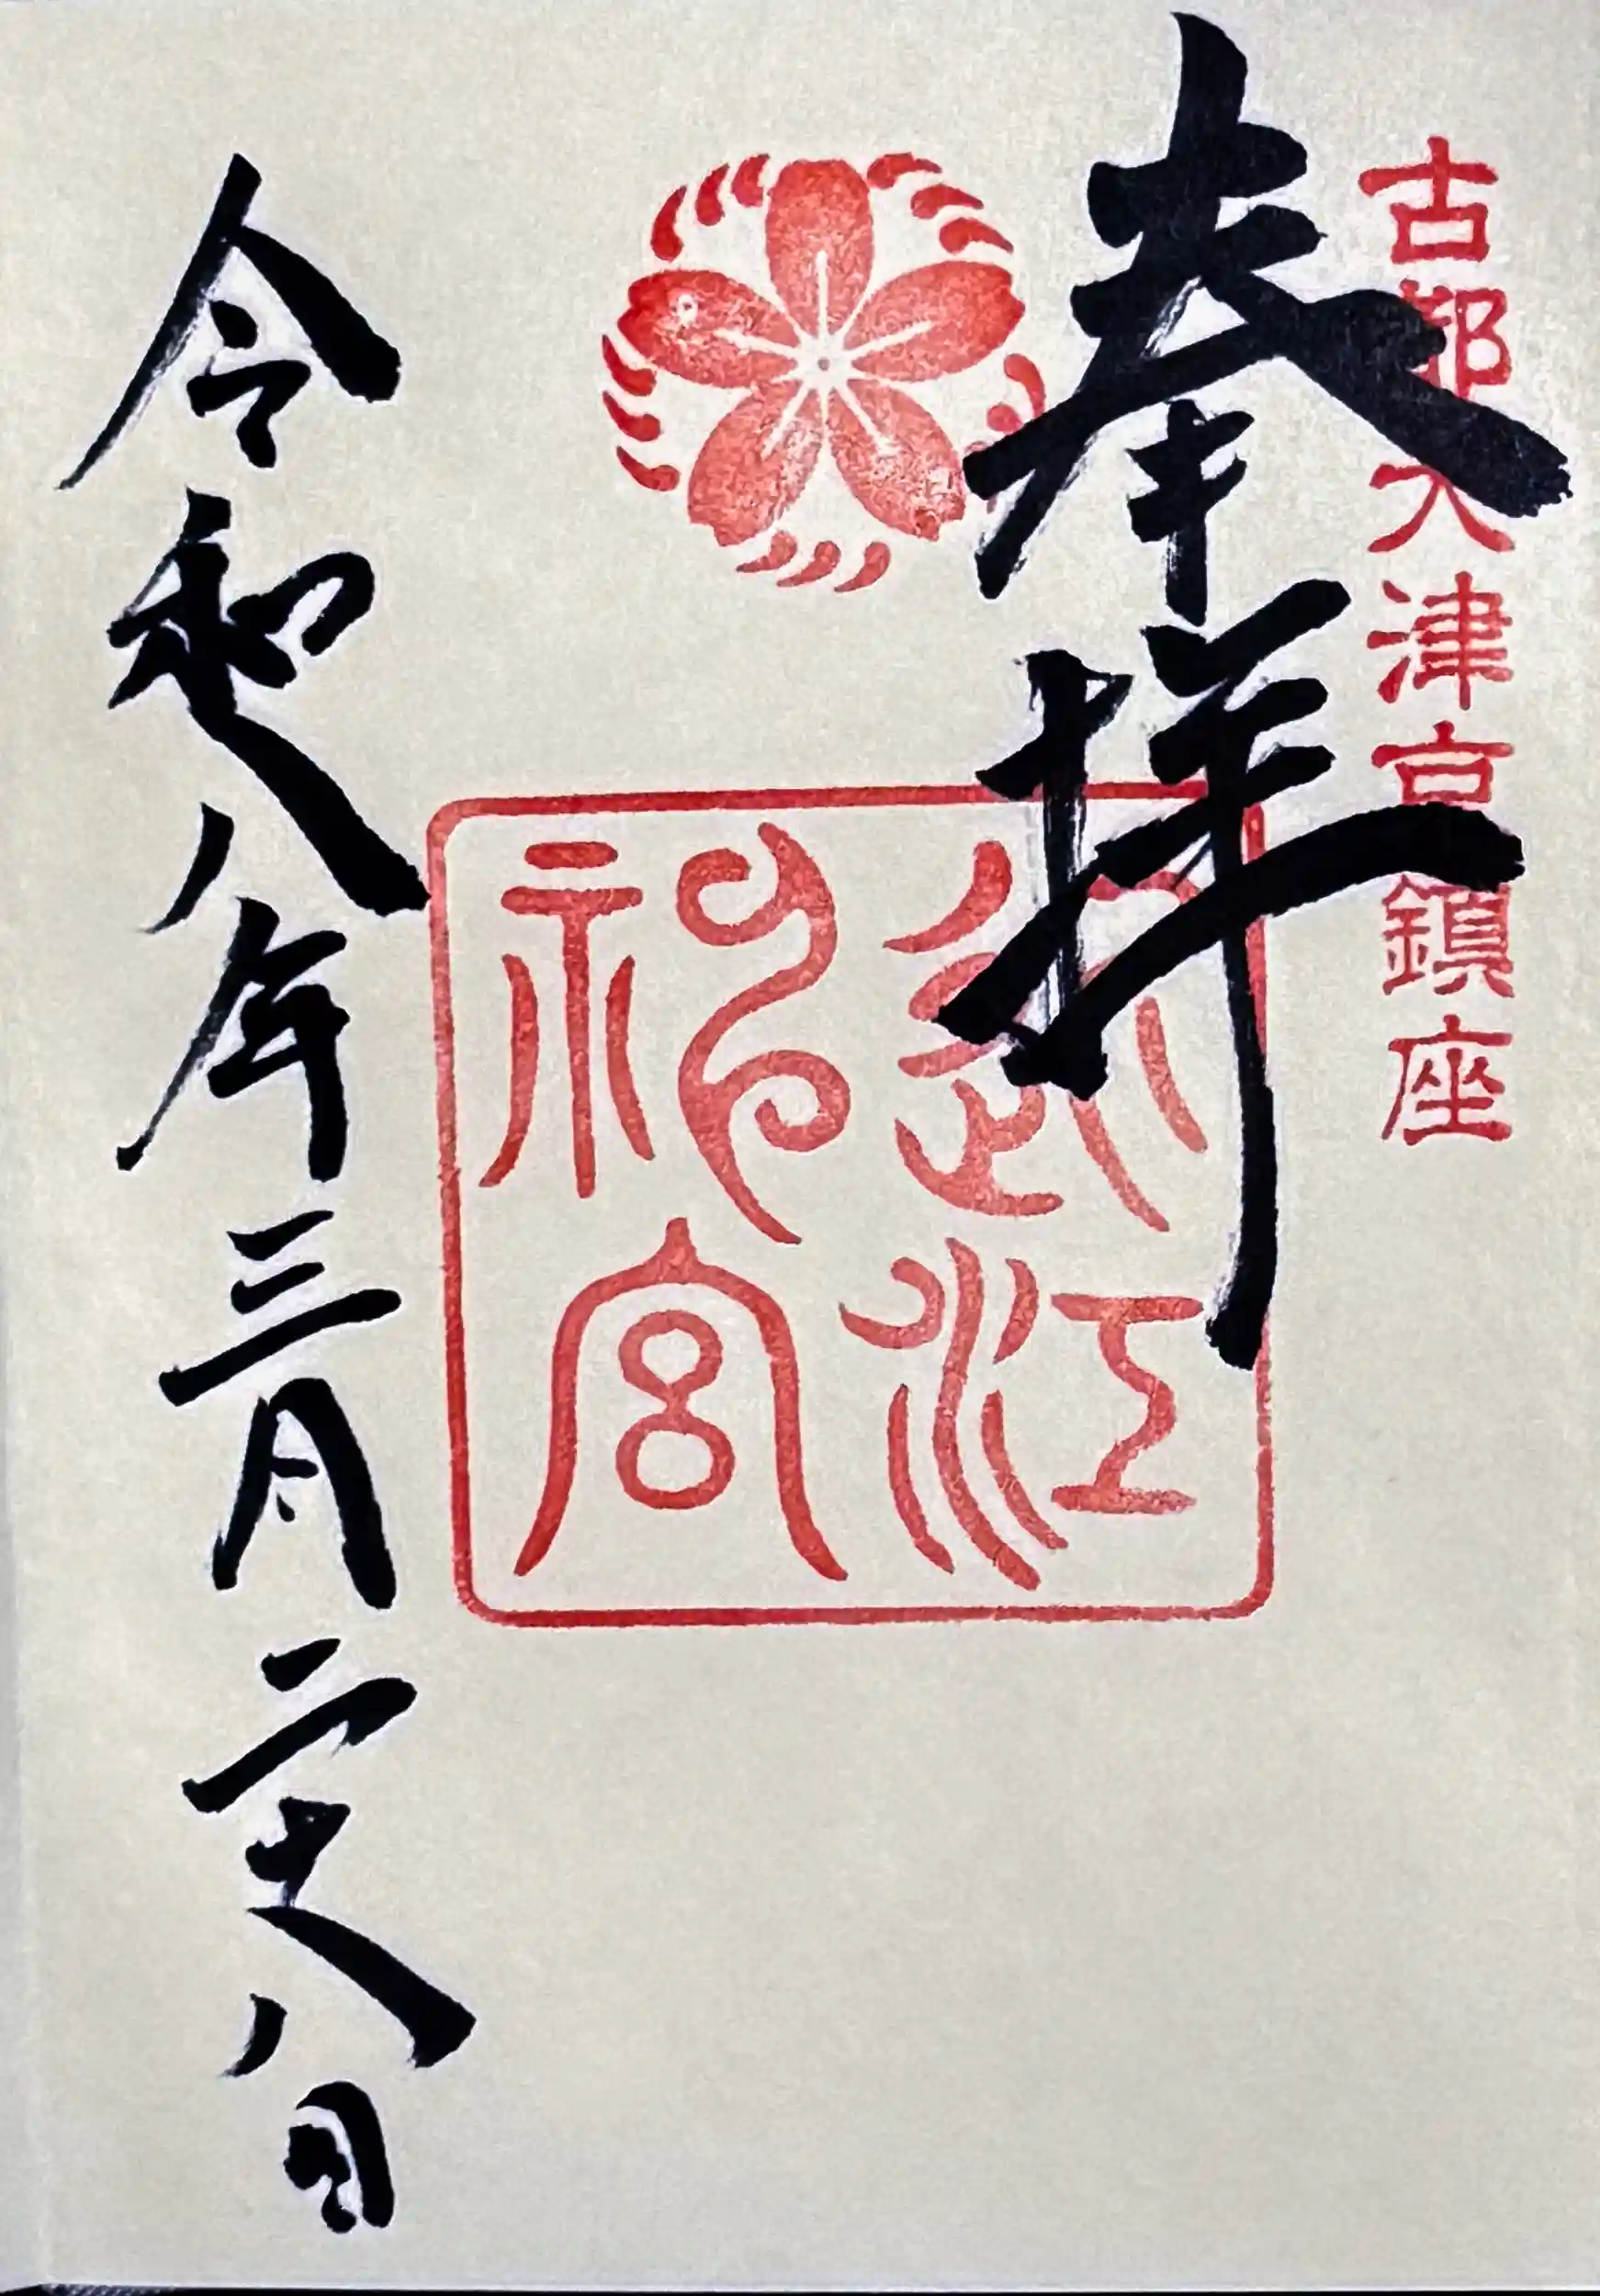 古都大津京鎮座
奉拝
近江
神宮
令和八年三月二十八日